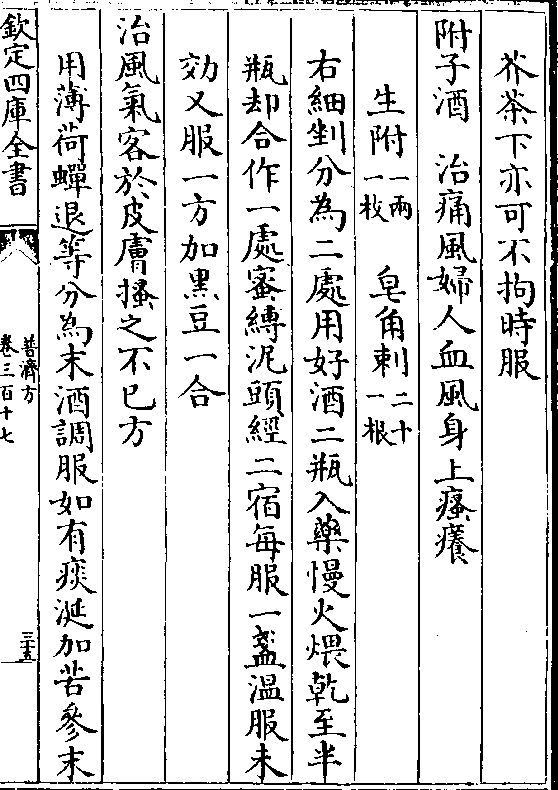 芥茶下亦可不拘時服
附子酒 治痛風婦人血風身上瘙癢
生附一兩一枚 皂角刺二十一根
右細剉分為二處用好酒二瓶入藥慢火煨乾至半
瓶却合作一處蜜縳泥頭經二宿每服一盞温服未
効又服一方加黒豆一合
治風氣客於皮膚搔之不已方
用薄荷蟬退等分為末酒調服如有痰涎加苦參末
欽定四庫全書
普濟方
卷三百十七
三五